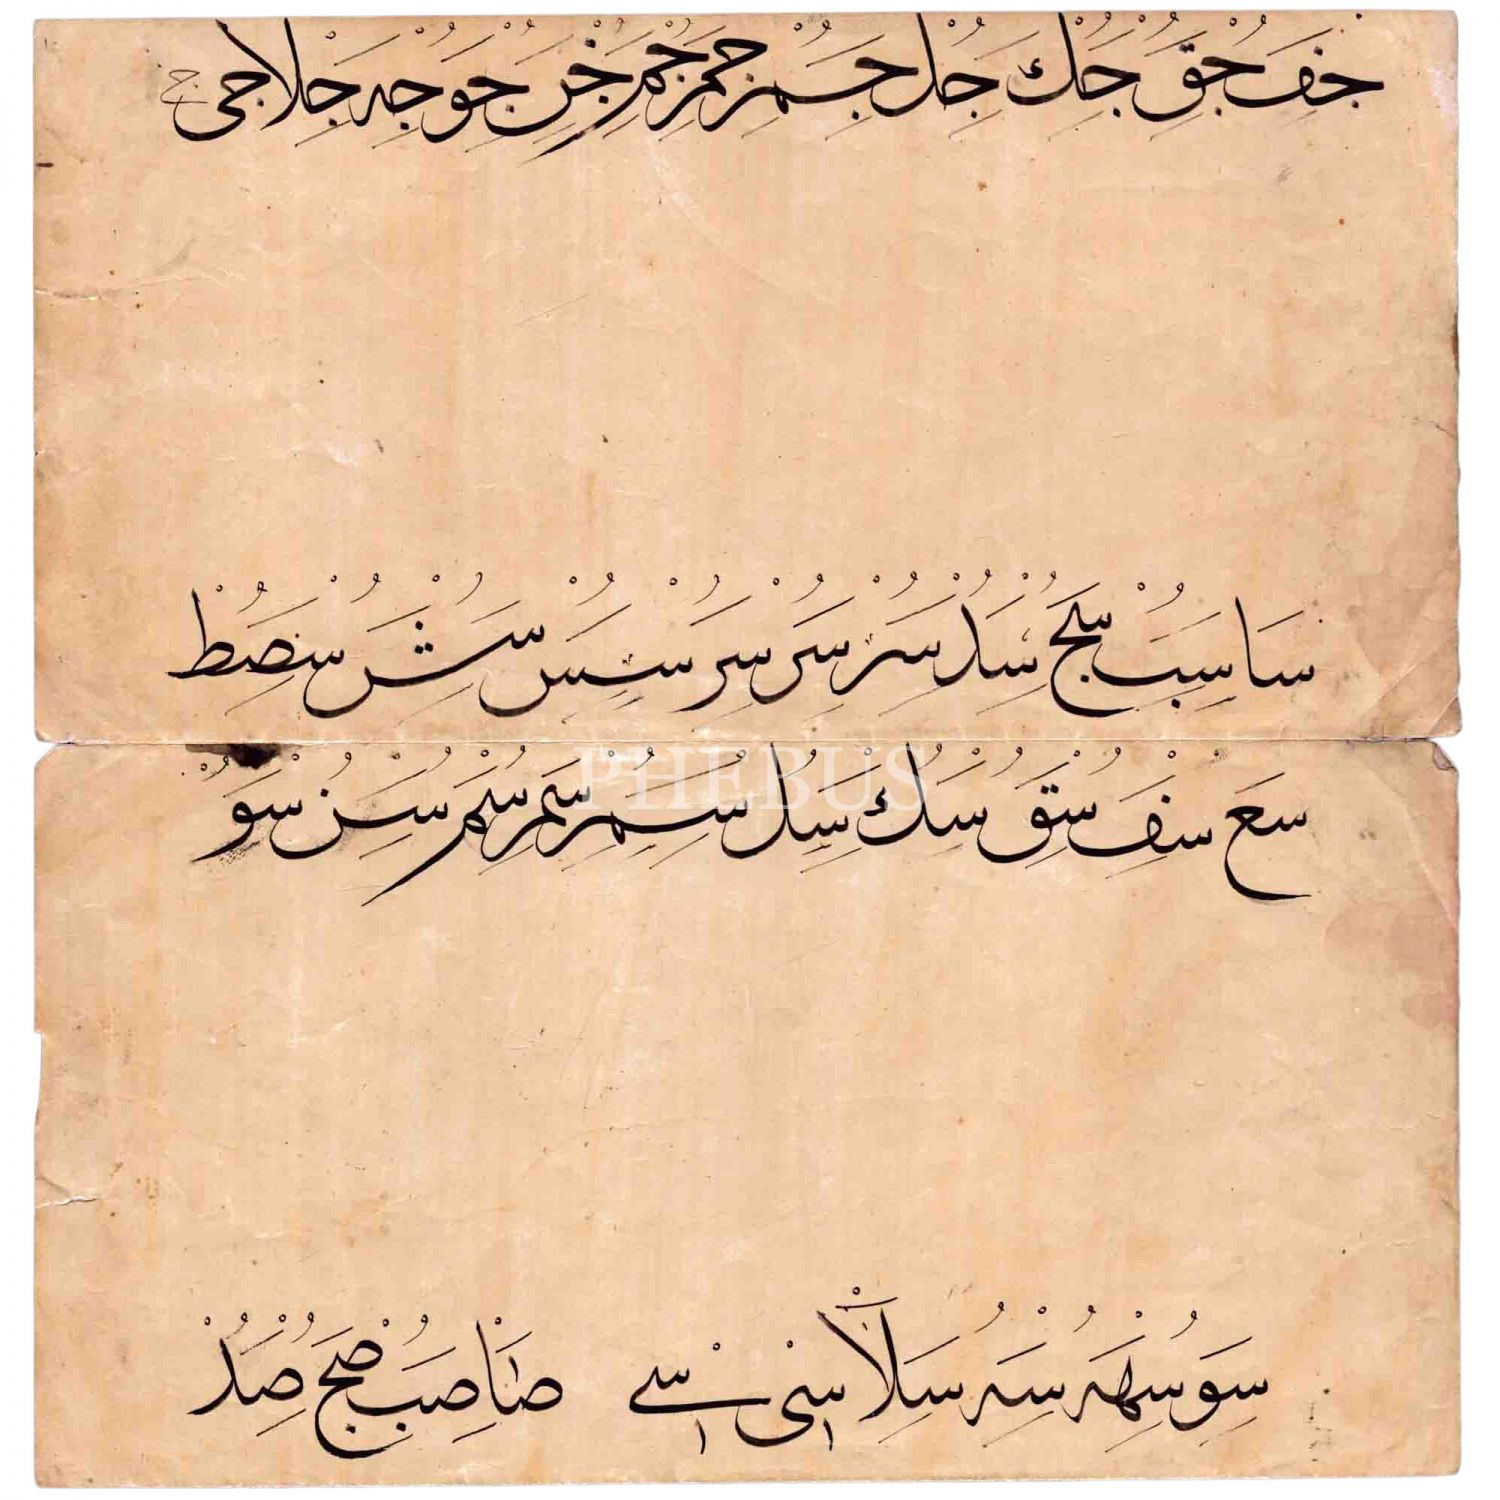 جف جق جك جل جم جم جم جن جو جه جلا جى
سا سب سج سد سر سر سر سس سش سص سط
PHEBUS
سع سف سق سك سل سم سم سم سن سو
سو سه سه سلا سى سے صا صب صج صد